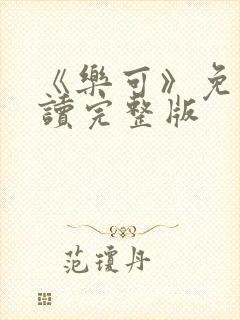 《樂可》免
讀完整版
范瓊丹